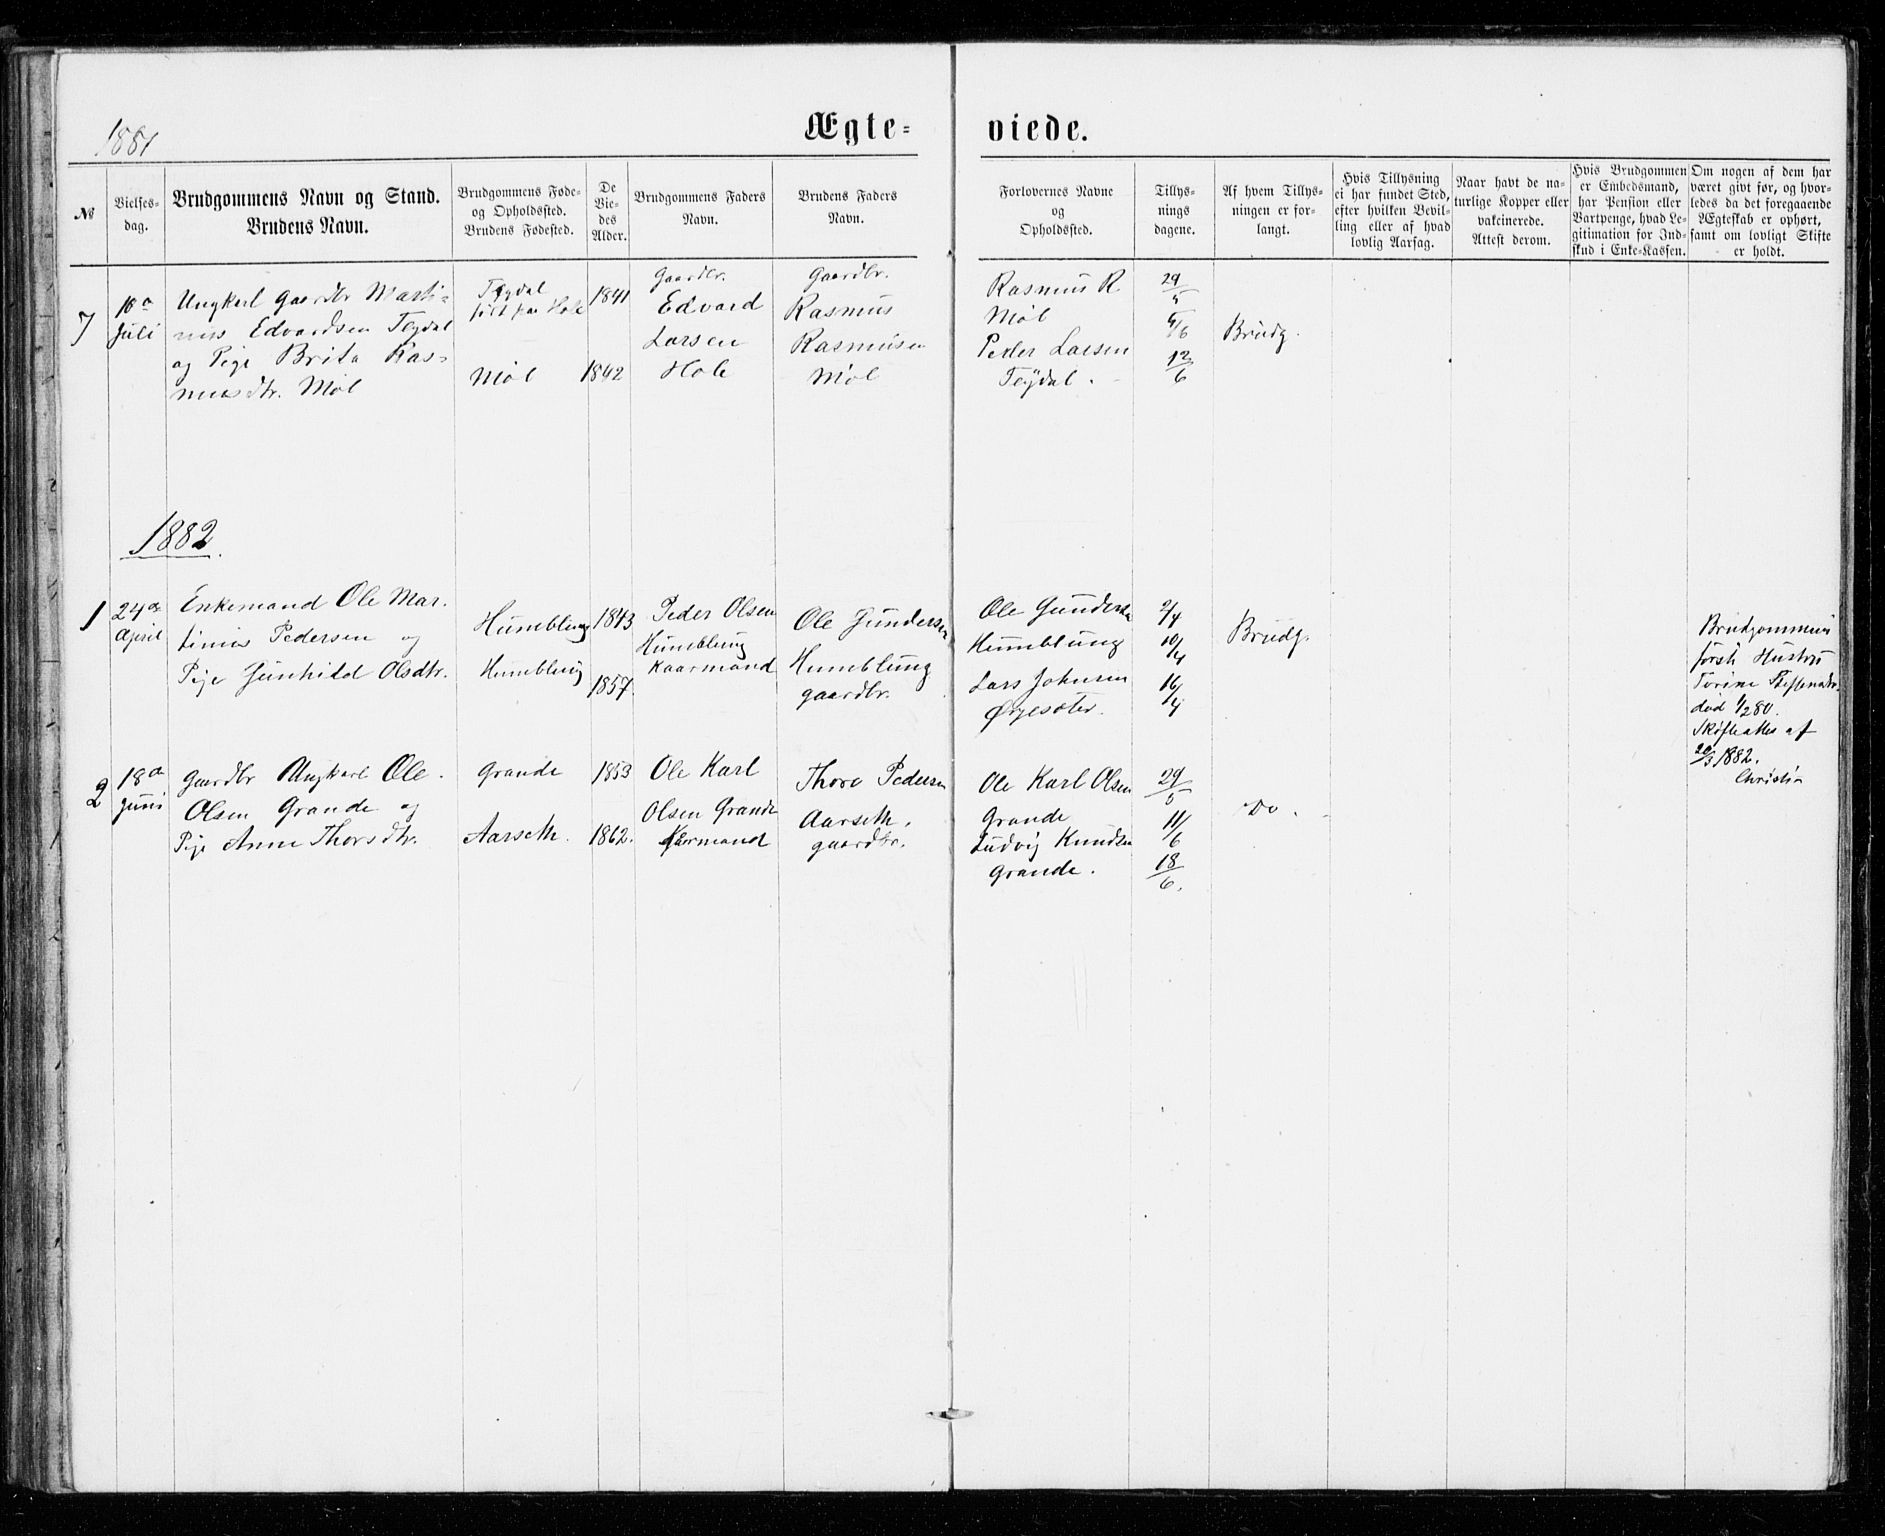 1881
Ægte=
viede.
№
Vielses-
dag.
Brudgommens Navn og Stand.
Brudens Navn.
Brudgommens Føde-
og Opholdssted.
Brudens Fødested.
De
Vie-
des
Alder.
Brudgommens Faders
Navn.
Brudens Faders
Navn.
Forlovernes Navne
og
Opholdssted.
Tillys-
nings
dagene.
Af hvem Tillys-
ningen er for-
langt.
Hvis Tillysning
ei har fundet Sted,
efter hvilken Bevil-
ling eller af hvad
lovlig Aarsag.
Naar havt de na-
turlige Kopper eller
vakcinerede.
Attest derom.
Hvis Brudgommen
er Embedsmand,
har Pension eller
Vartpenge, hvad Le-
gitimation for Ind-
skud i Enke-Kassen.
Om nogen af dem har
været givt før, og hvor-
ledes da det foregaaende
Ægteskab er ophørt,
samt om lovligt Skifte
er holdt.
7
Juli
Ungkarl Gaardbr Marti-
nus Edvardsen
og Pige Brita Ras-
musdtr. Möl
født paa Hole
Möl
1841
1842
Gaardbr.
Edvard
Larsen
Hole
Gaardbr.
Rasmus
Rasmusen
Möl
Rasmus R
Möl
Peder Larsen
29/5
5/6
12/6
Brudg.
1882.
1
24de
April
Enkemand Ole Mar-
tinus Pedersen og
Pige Gunhild Olsdtr.
Humblung
Humblung
1843
1857.
Peder Olsen
Humblung
Kaarmand
Ole Gundersen
Humblung
gaardbr.
Ole Gundersen
Humblung
Lars Johnsen
2/4
10/4
16/4
Brudg.
Brudgommens
første Hustru
død 1/2 80.
af
20/3 1882.
2
18de
Juni
Gaardbr Ungkarl Ole
Olsen Grande og
Pige Anne Thorsdtr.
Grande
Aarseth.
1853
1862.
Ole Karl
Olsen Grande
Kaarmand
Thore Pedersen
Aarseth.
gaardbr.
Ole Karl Olsen
Grande
Ludvig Knudsen
Grande.
29/5
11/6
18/6.
Do.